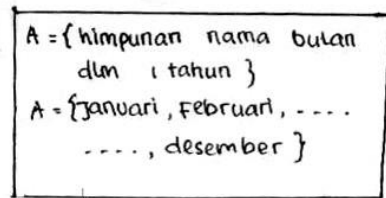 A = { himpunan nama bulan
dlm 1 tahun }
A = {Januari, Februari, ....
...., desember }